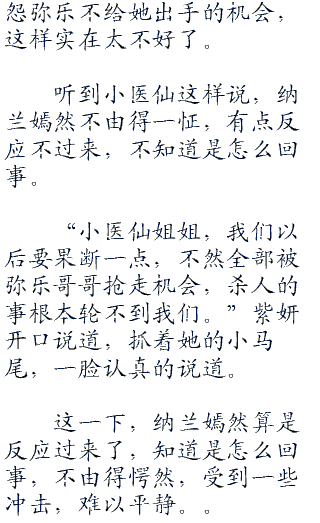 怨弥乐不给她出手的机会，
这样实在太不好了。
听到小医仙这样说，纳
兰嫣然不由得一怔，有点反
应不过来，不知道是怎么回
事。
“小医仙姐姐，我们以
后要果断一点，不然全部被
弥乐哥哥抢走机会，杀人的
事根本轮不到我们。”紫妍
开口说道，抓着她的小马
尾，一脸认真的说道。
这一下，纳兰嫣然算是
反应过来了，知道是怎么回
事，不由得愕然，受到一些
冲击，难以平静。。